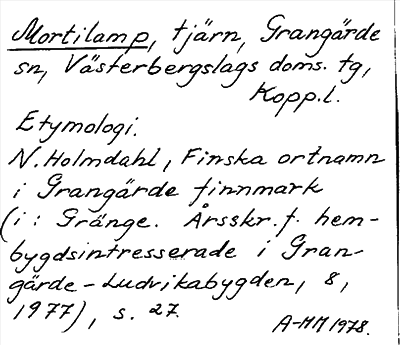 Mortilamp, tjärn, Grangärde
sn, Västerbergslags doms. tg,
Kopp.l.
Etymologi.
N. Holmdahl, Finska ortnamn
i Grangärde finnmark
(i: Gränge. Årsskr. f. hem-
bygdsintresserade i Gran-
gärde-Ludvikabygden, 8,
1977), s. 27.
A-MM 1978.